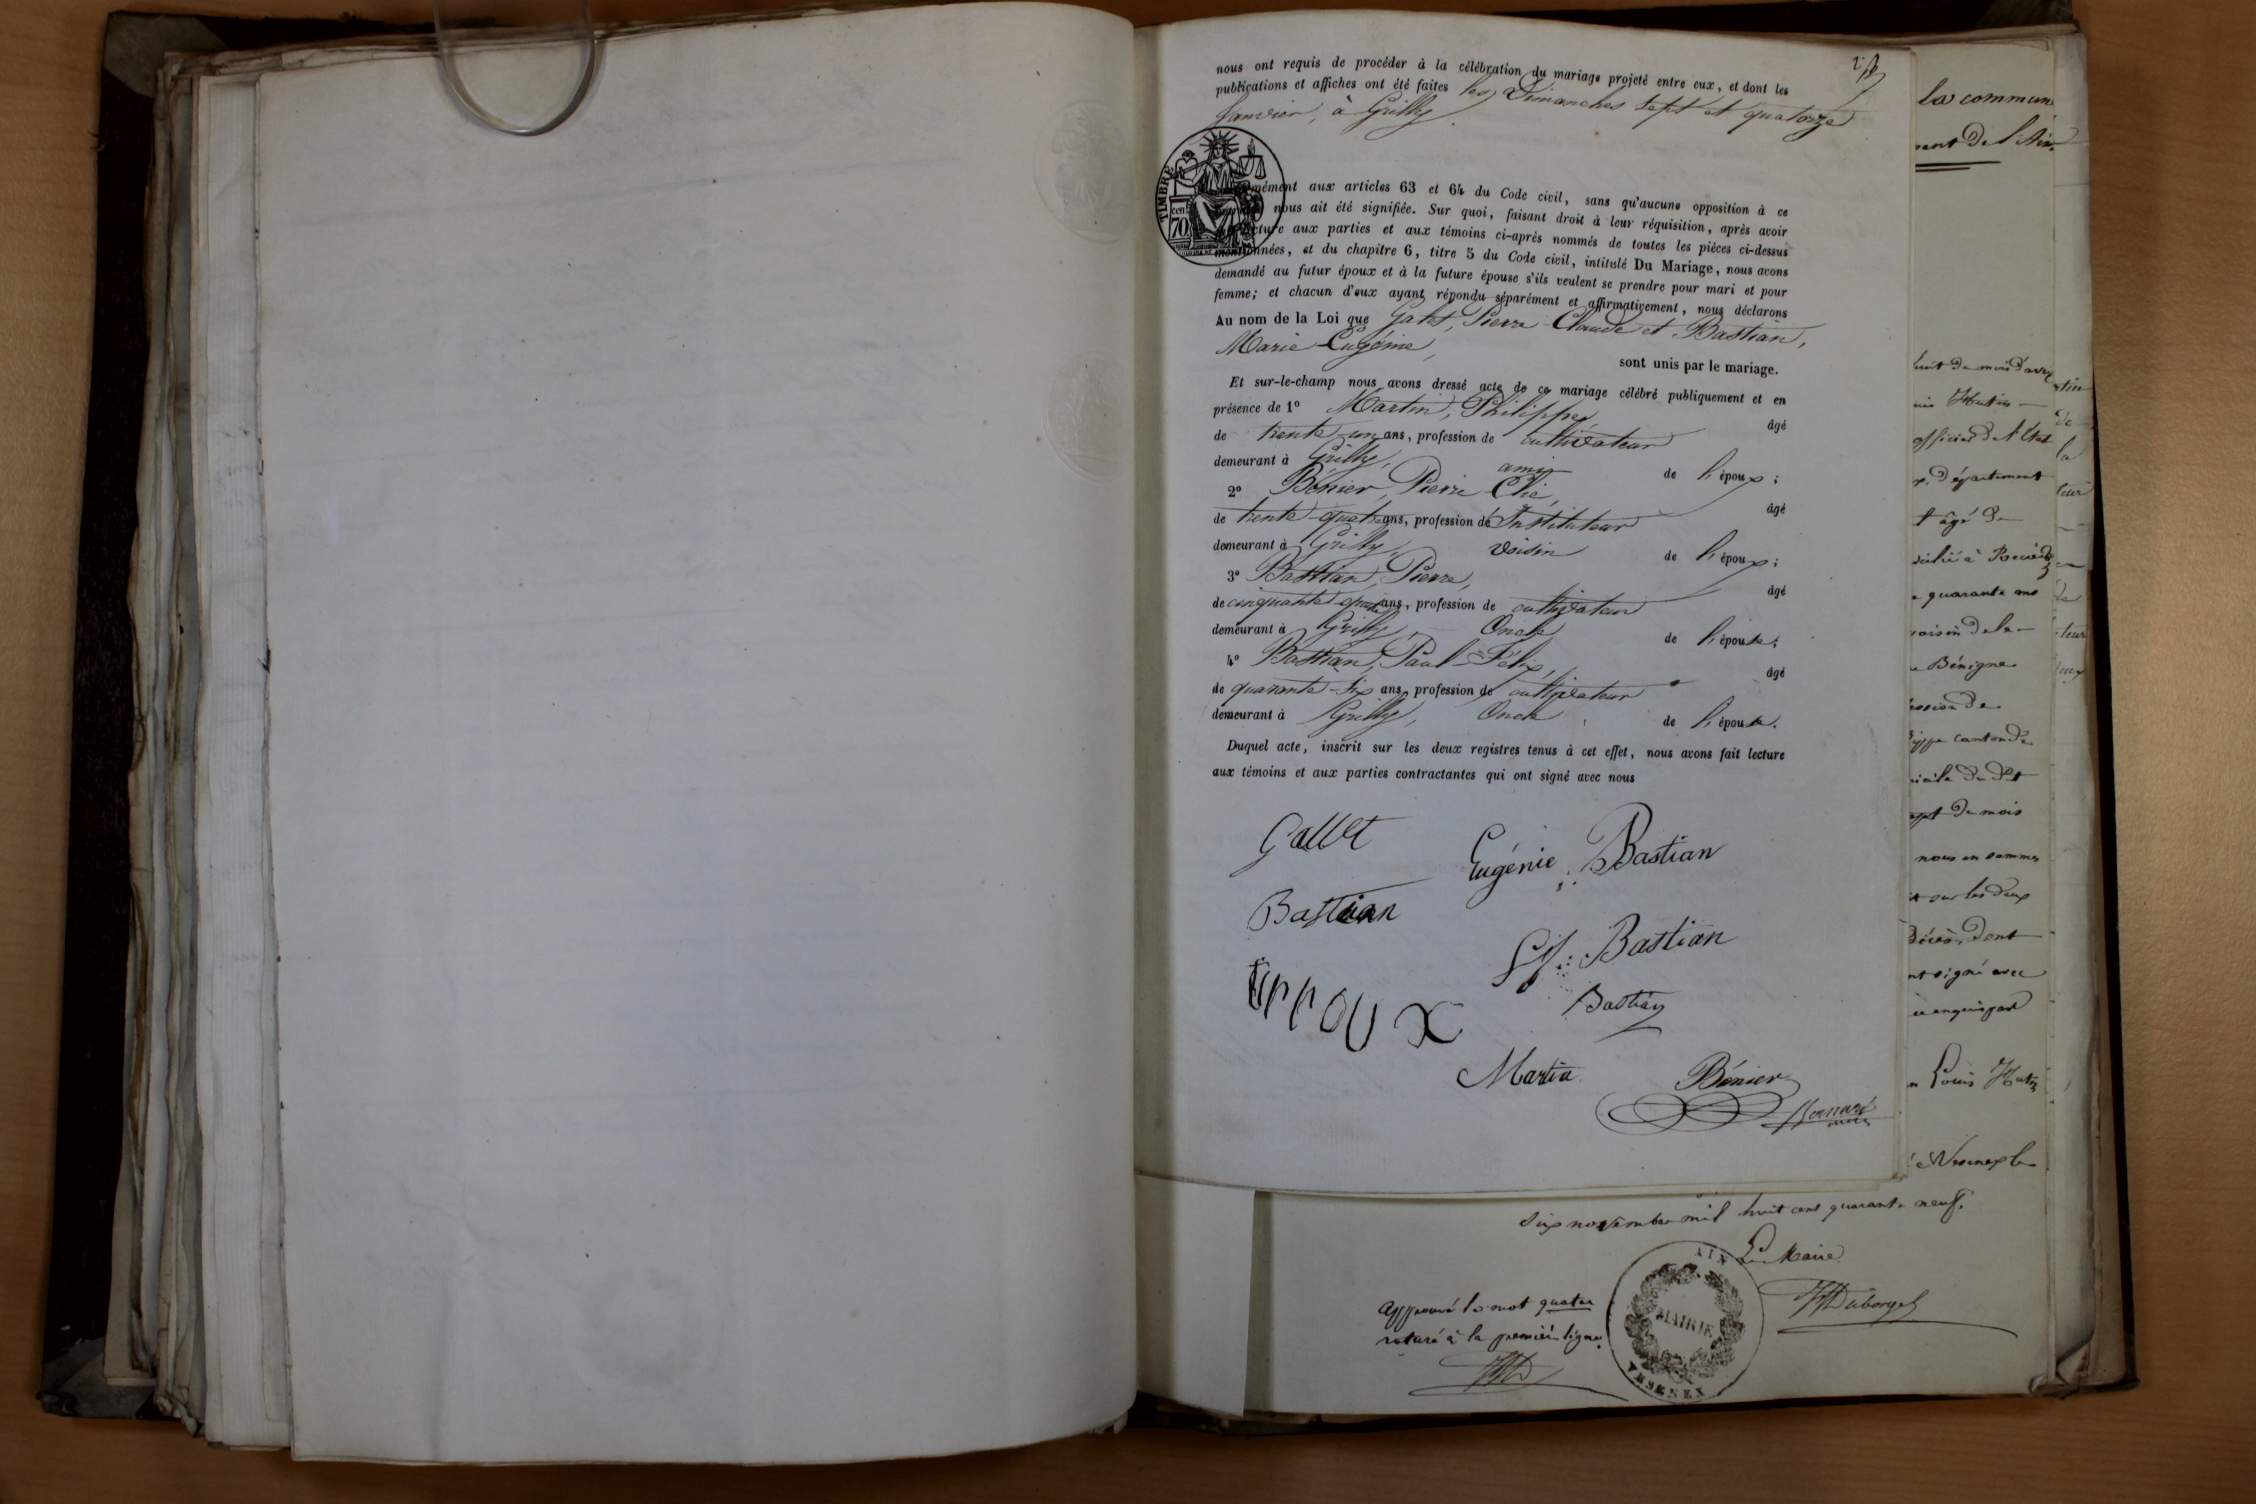 nous ont requis de procéder à la célébration du mariage projeté entre eux, et dont les
publications et affiches ont été faites les Dimanches sept et quatorze
Janvier, à Grilly
TIMBRE
cen 70
mément aux articles 63 et 64 du Code civil, sans qu'aucune opposition à ce
nous ait été signifiée. Sur quoi, faisant droit à leur réquisition, après avoir
lecture aux parties et aux témoins ci-après nommés de toutes les pièces ci-dessus
mentionnées, et du chapitre 6, titre 5 du Code civil, intitulé Du Mariage, nous avons
demandé au futur époux et à la future épouse s'ils veulent se prendre pour mari et pour
femme; et chacun d'eux ayant répondu séparément et affirmativement, nous déclarons
Au nom de la Loi que Pierre Claude et Bastian,
Marie Eugénie,
sont unis par le mariage.
Et sur-le-champ nous avons dressé acte de ce mariage célébré publiquement et en
présence de 1° Martin, Philippe, âgé
de trente un ans, profession de cultivateur
demeurant à Grilly, ami de l'époux;
2° Bénier, Pierre Elie, âgé
de trente quatre ans, profession de Instituteur
demeurant à Grilly, voisin de l'époux;
3° Bastian, Pierre, âgé
de cinquante ans, profession de cultivateur
demeurant à Grilly, Oncle de l'épouse;
4° Bastian, Paul-Félix, âgé
de quarante-six ans, profession de cultivateur
demeurant à Grilly, Oncle de l'épouse.
Duquel acte, inscrit sur les deux registres tenus à cet effet, nous avons fait lecture
aux témoins et aux parties contractantes qui ont signé avec nous
Gallet
Eugénie Bastian
Bastian
Bastian
Bastian
Martin
Bénier
la commun
ment de l'Ain
officier de l'Etat
département
t âgé de
quarante
voisin de la
Bénigne
canton de
du mois
nous en sommes
sur les deux
décès, dont
signé avec
Louis Hutin
Vesenex le
six novembre mil huit cent quarante neuf.
Le Maire
Approuvé le mot quatre
raturé à la première ligne.
AIN
MAIRIE
VESENEX